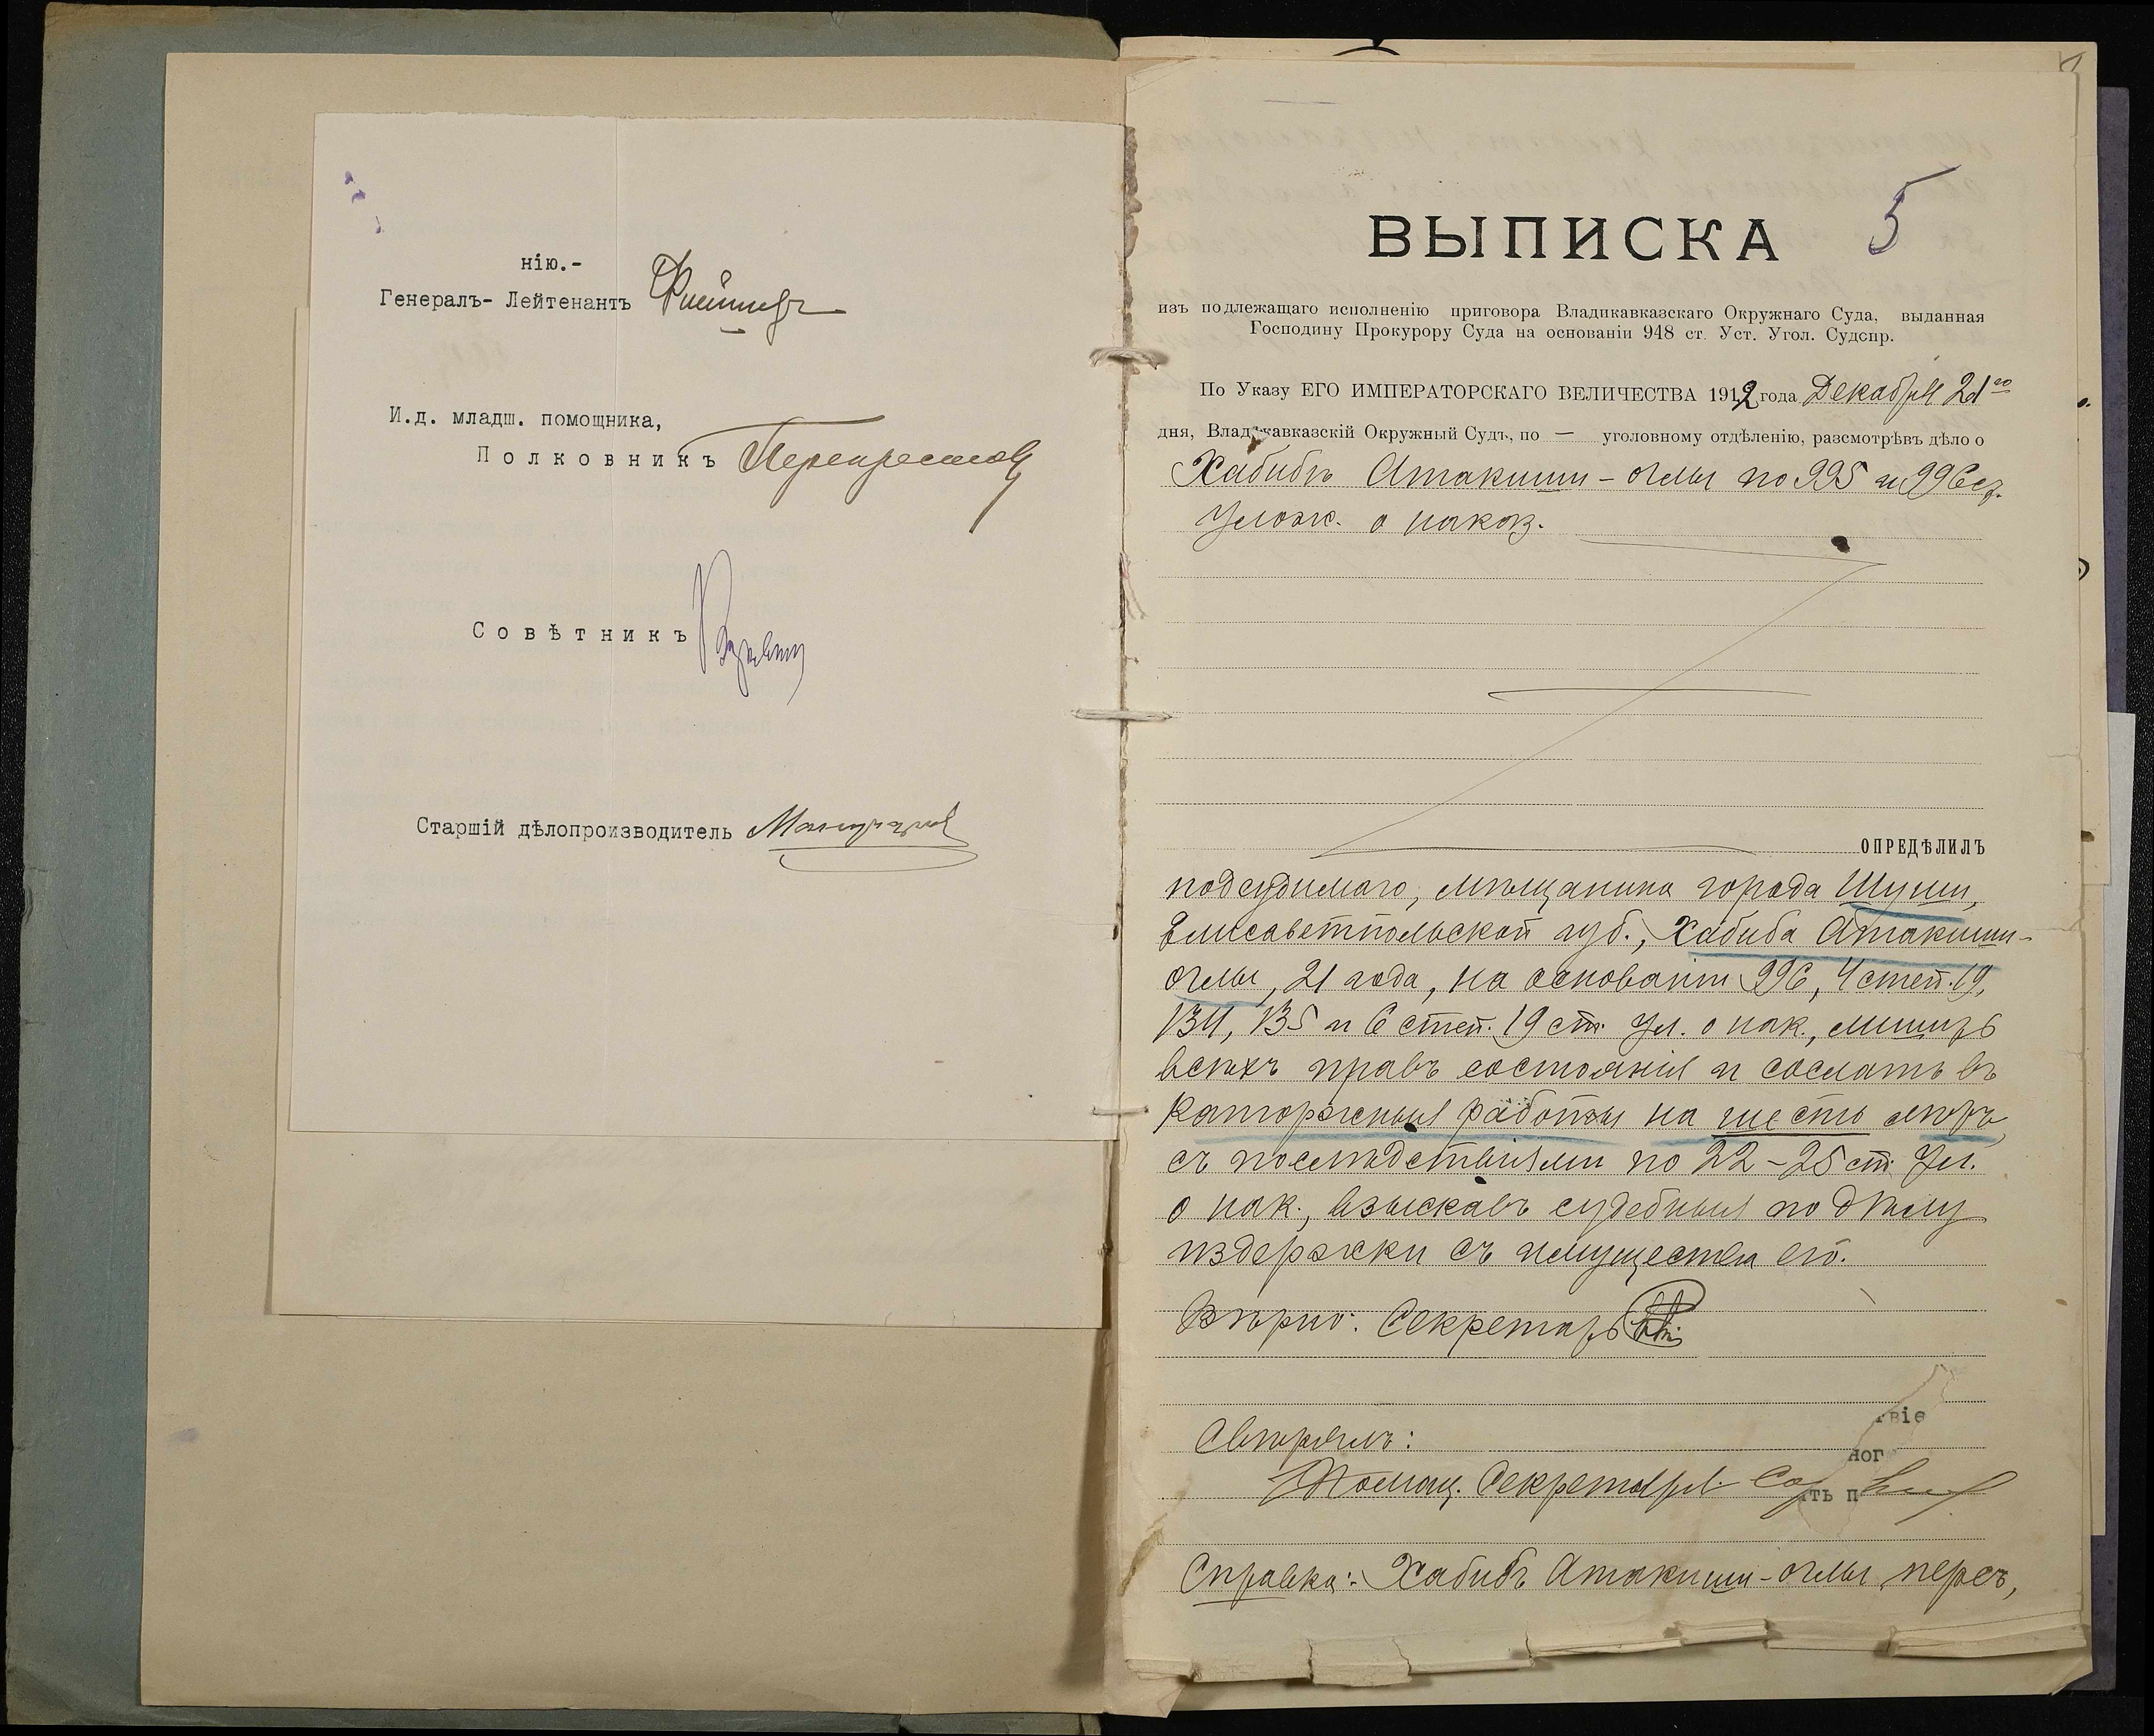 нію.-
Генералъ- Лейтенантъ
И.д. младш. помощника,
Полковникъ Перекрестовъ
Совѣтникъ
Старшій дѣлопроизводитель
ВЫПИСКА 5
изъ подлежащаго исполненію приговора Владикавказскаго Окружнаго Суда, выданная
Господину Прокурору Суда на основаніи 948 ст. Уст. Угол. Судопр.
По Указу ЕГО ИМПЕРАТОРСКАГО ВЕЛИЧЕСТВА 1912 года Декабря 21го
дня, Владикавказскій Окружный Судъ, по — уголовному отдѣленію, разсмотрѣвъ дѣло о
Хабибѣ Атакиши-оглы по 995 и 996 ст.
улож. о наказ.
ОПРЕДѢЛИЛЪ
подсудимаго, мѣщанина города Шуши,
Елисаветпольской губ., Хабиба Атакиши-
оглы, 21 года, на основаніи 996, 4 степ. 19,
134, 135 и 6 степ. 19 ст. Ул. о нак., лишить
всѣхъ правъ состоянія и сослать въ
каторжныя работы на шесть лѣтъ,
съ послѣдствіями по 22-25 ст. Ул.
о нак., взыскавъ судебныя по дѣлу
издержки съ имущества его.
Вѣрно: Секретарь
твіе
Свѣрялъ:
ног
Помощ. Секретаря
ть п
Справка: Хабибъ Атакиши-оглы персъ,